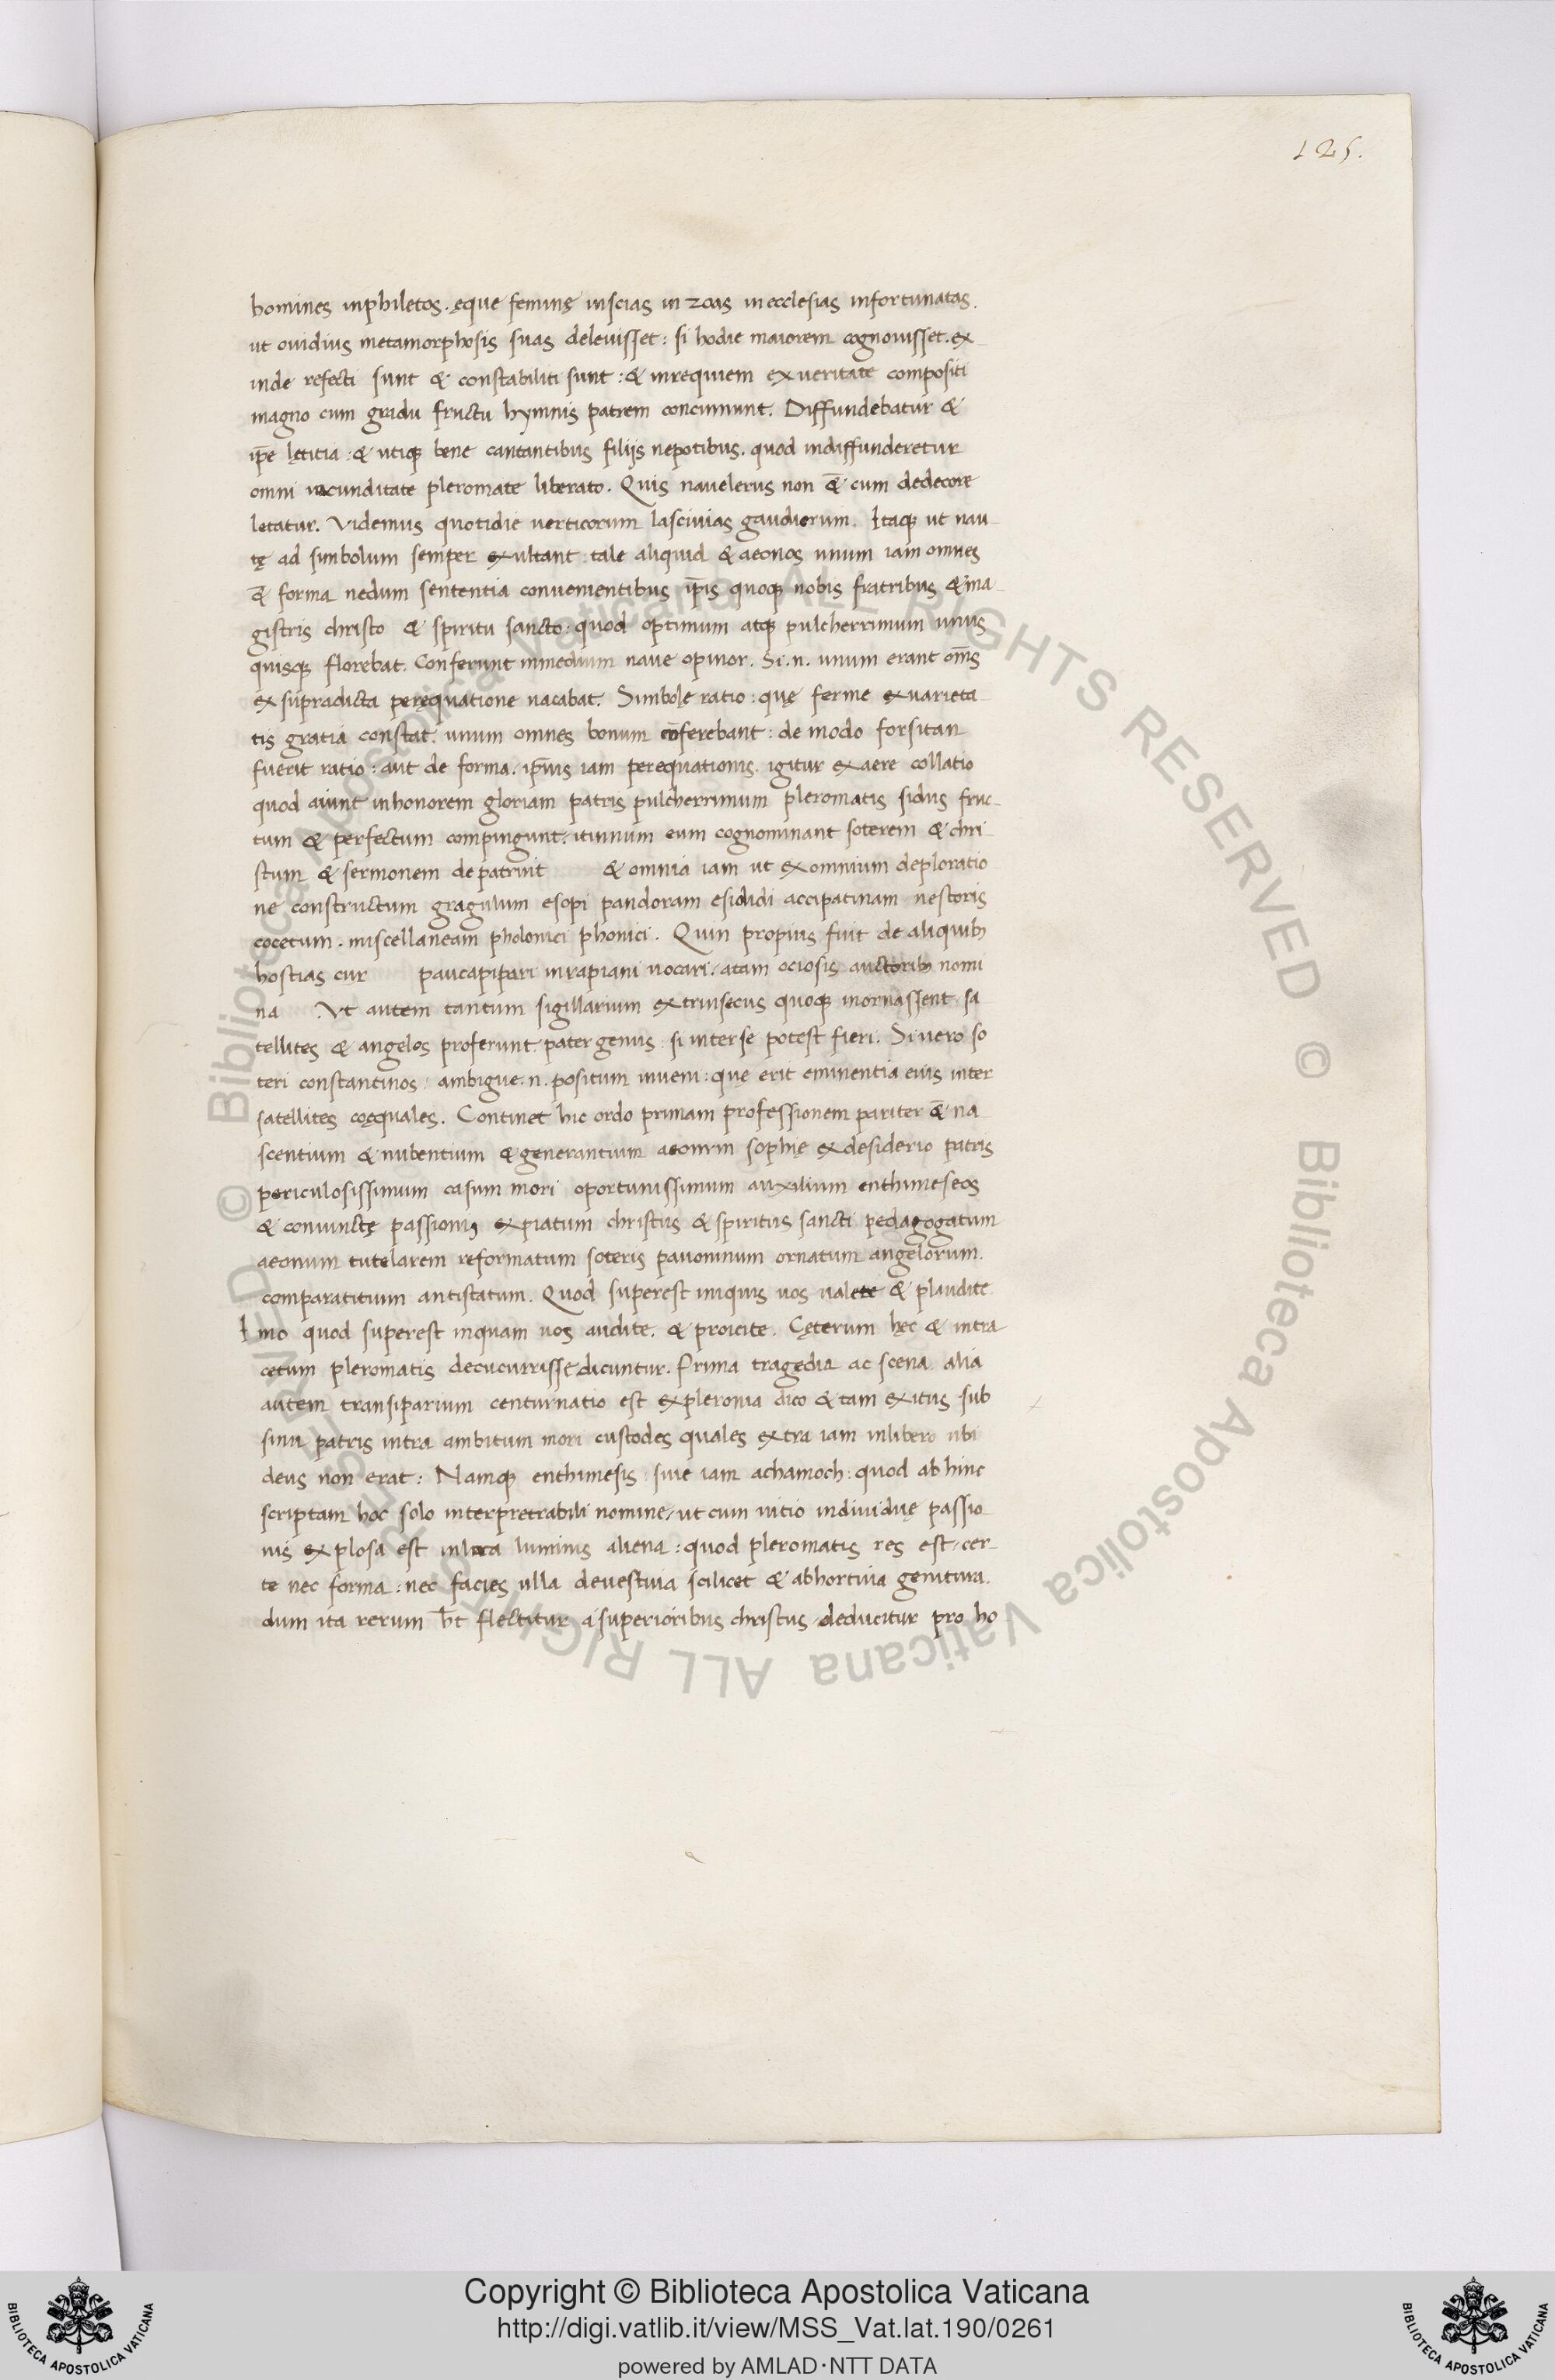 125.
homines inphiletos. ęque feminę inscias in zoas in ecclesias infortunatas.
ut ouidius metamorphosis suas deleuisset: si hodie maiorem cognouisset. ex
inde refecti sunt & constabiliti sunt: & inrequiem ex ueritate compositi
magno cum gradu fructu hymnis patrem concinunt. Diffundebatur &
ip̄e lętitia: & utiqꝫ bene cantantibus filijs nepotibus. quod indiffunderetur
omni iocunditate pleromate liberato. Quis nauelerus non &̄ cum dedecore
letatur. Videmus quotidie uerticorum lasciuias gaudiorum. Itaqꝫ ut nau-
tę ad simbolum semper exultant: tale aliquid & aeonos unum iam omnes
&̄ forma nedum sententia conuenientibus ip̄is quoqꝫ nobis fratribus & ma-
gistris christo & spiritu sancto: quod optimum atqꝫ pulcherrimum unus
quisqꝫ florebat. Conferunt inmedium naue opinor. Si .n. unum erant om̄s
ex supradicta peręquatione uacabat. Simbolę ratio: quę ferme exuarieta-
tis gratia constat. unum omnes bonum cōferebant: de modo forsitan
fuerit ratio: aut de forma. ip̄ius iam perequationis. igitur exaere collatio
quod aiunt inhonorem gloriam patris pulcherrimum pleromatis sidus fruc-
tum & perfectum compingunt. itumum eum cognominant soterem & chri-
stum & sermonem depatriuit & omnia iam ut exomnium deploratio
ne constructum gragulum esopi pandoram esididi accipatinam nestoris
cocetum. miscellaneam pholonici phonici. Quin propius fuit de aliquibꝫ
hostias cur paucapipari inrapiani uocari. atam ociosis auctoribꝫ nomi
na .Vt autem tantum sigillarium extrinsecus quoqꝫ inornassent sa
tellites & angelos proferunt. pater genus: si interse potest fieri. Si uero so
teri constantinos: ambigue .n. positum inueni: quę erit eminentia eius inter
satellites coęquales. Continet hic ordo primam professionem pariter &̄ na
scentium & nubentium & generantium aeonum sophię exdesiderio patris
periculosissimum casum mori oportunissimum auxilium enthimeseos
& coniunctę passionis expiatum christus & spiritus sancti pedagogatum
aeonum tutelarem reformatum soteris pauoninum ornatum angelorum.
comparatitium antistatum. Quod superest iniquis uos ualete & plaudite
Imo quod superest inquam uos audite. & proicite. Cęterum hęc & intra
cetum pleromatis decucurrisse dicuntur. Prima tragedia ac scena alia
autem transiparium centurnatio est expleroma dico & tam exitus sub
sinu patris intra ambitum mori custodes quales extra iam inlibero ubi
deus non erat: Namqꝫ enthimesis siue iam achamoch: quod abhinc
scriptam hoc solo interpretrabili nomine ut cum uitio indiuiduę passio
nis explosa est inloca luminis aliena: quod pleromatis res est cer-
te nec forma: nec facies ulla deuestiuia scilicet & abhortiuia genitura.
dum ita rerum h̄t flectitur a superioribus christus deducitur pro ho
© Biblioteca Apostolica Vaticana ALL RIGHTS RESERVED © Biblioteca Apostolica Vaticana ALL RIGHTS RESERVED
Copyright © Biblioteca Apostolica Vaticana
http://digi.vatlib.it/view/MSS_Vat.lat.190/0261
powered by AMLAD·NTT DATA
BIBLIOTECA APOSTOLICA VATICANA
BIBLIOTECA APOSTOLICA VATICANA